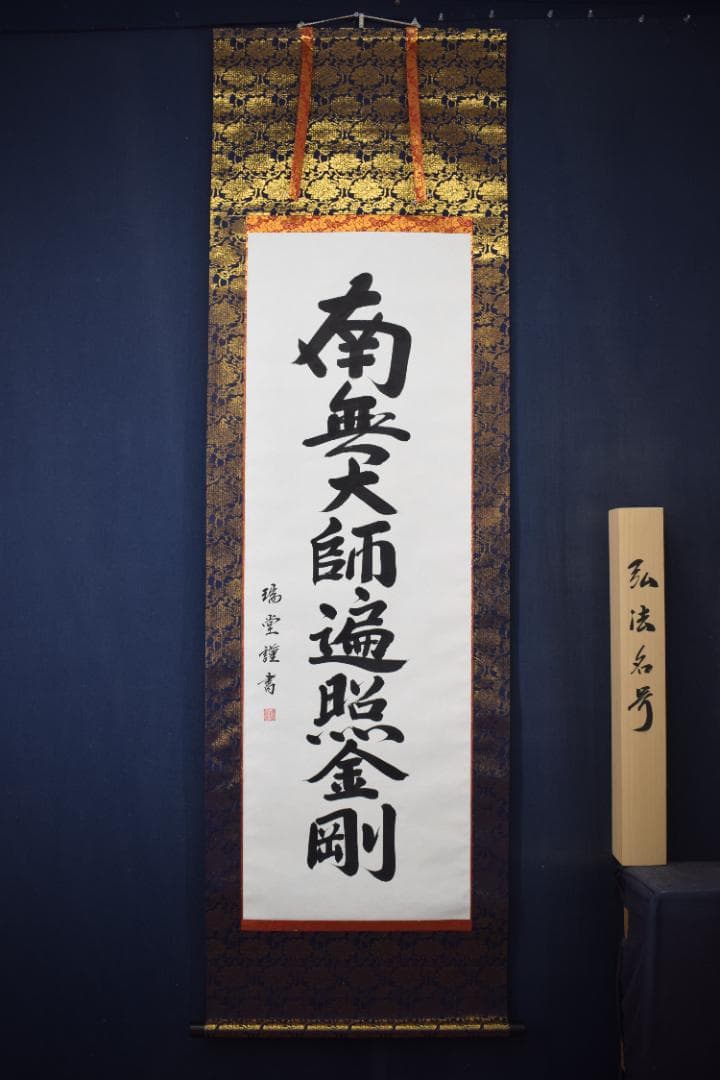 南無大師遍照金剛
瑞堂謹書
弘法名号